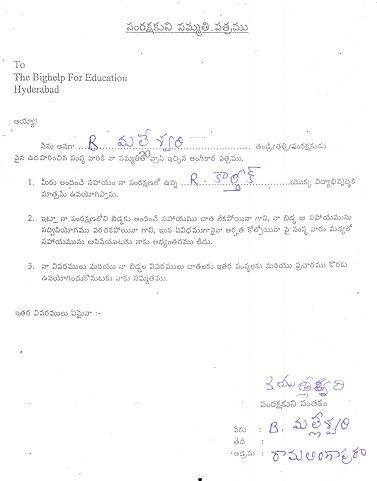 సంరక్షకుని సమ్మతి పత్రము
To
The Bighelp For Education
Hyderabad
అయ్యా!
నేను అనగా B. మల్లేశ్వరి తండ్రి/తల్లి/సంరక్షకుడు
పైన ఉదహరించిన సంస్థ వారికి నా సమ్మతితో వ్రాసి ఇచ్చిన అంగీకార పత్రము.
1. మీరు అందించే సహాయం నా సంరక్షణలో ఉన్న R. కార్తీక్ యొక్క విద్యాభివృద్ధికి
మాత్రమే ఉపయోగిస్తాను.
2. ఇట్లూ నా సంరక్షణలోని బిడ్డకు అందించే సహాయము దాత లేకపోయినా గాని, నా బిడ్డ ఆ సహాయమును
సద్వినియోగము పరచకపోయినా గాని, ఇంక ఏవిధముగానైనా అర్హత కోల్పోయినా పై సంస్థ వారు మధ్యలో
సహాయమును ఆపివేయుటకు నాకు అభ్యంతరము లేదు.
3. నా వివరములు మరియు నా బిడ్డల వివరములు దాతలకు ఇతర సంస్థలకు మరియు ప్రచారము కొరకు
ఉపయోగించుకొనుటకు నాకు సమ్మతము.
ఇతర వివరములు ఏమైనా :-
సంరక్షకుని సంతకం
పేరు : B. మల్లేశ్వరి
తేది :
అడ్రసు : రామలింగాపురం